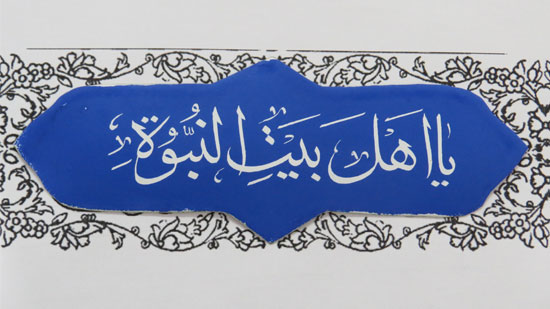 يا اهَلَ بَيَتِ النُبُّوُةِ